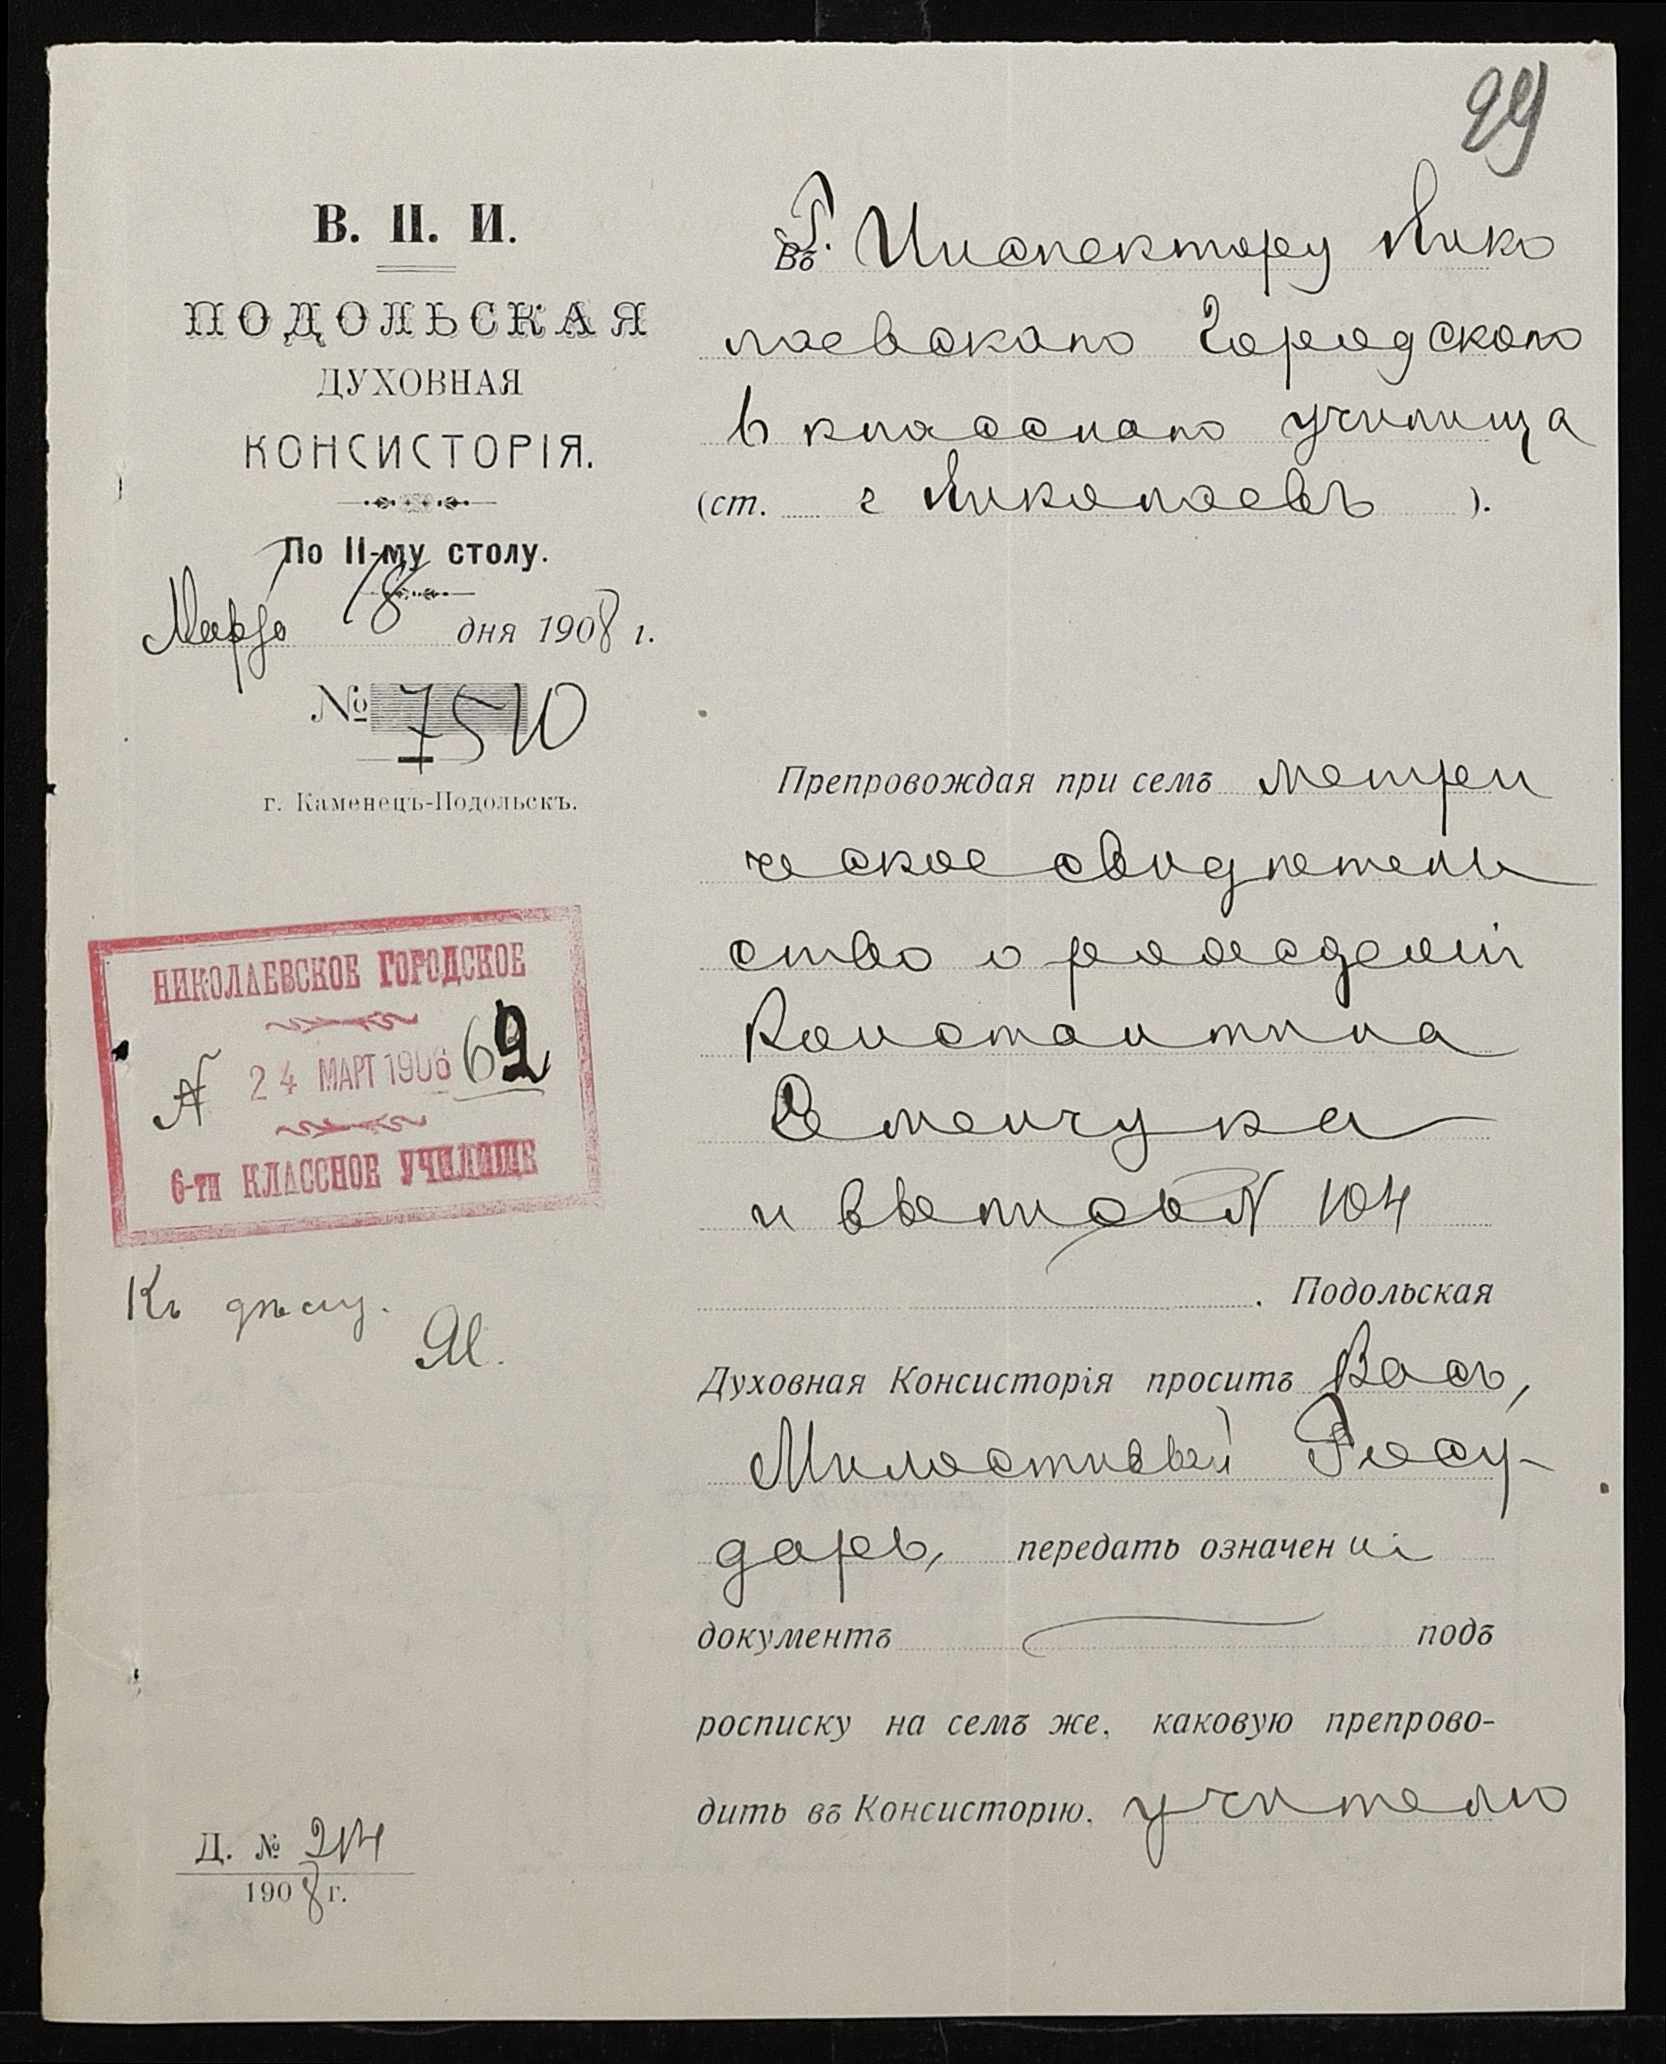 29
В. П. И.
ПОДОЛЬСКАЯ
ДУХОВНАЯ
КОНСИСТОРІЯ.
По II-му столу.
Марта 18 дня 1908 г.
№ 7510
г. Каменецъ-Подольскъ.
НИКОЛАЕВСКОЕ ГОРОДСКОЕ
№ 24 МАРТ 1908 62
6-ти КЛАССНОЕ УЧИЛИЩЕ
Къ дѣлу.
Д. № 214
1908 г.
Въ Г. Инспектору Нико
лаевскаго Городского
6 класснаго училища
(ст. г Николаевъ ).
Препровождая при семъ метри
ческое свидѣтель
ство о рожденіи
Константина
Семенчука
и выпись N 104
. Подольская
Духовная Консисторія проситъ Васъ,
Милостивый Госу-
дарь, передать означенні
документъ подъ
росписку на семъ же, каковую препрово-
дить въ Консисторію. учителю